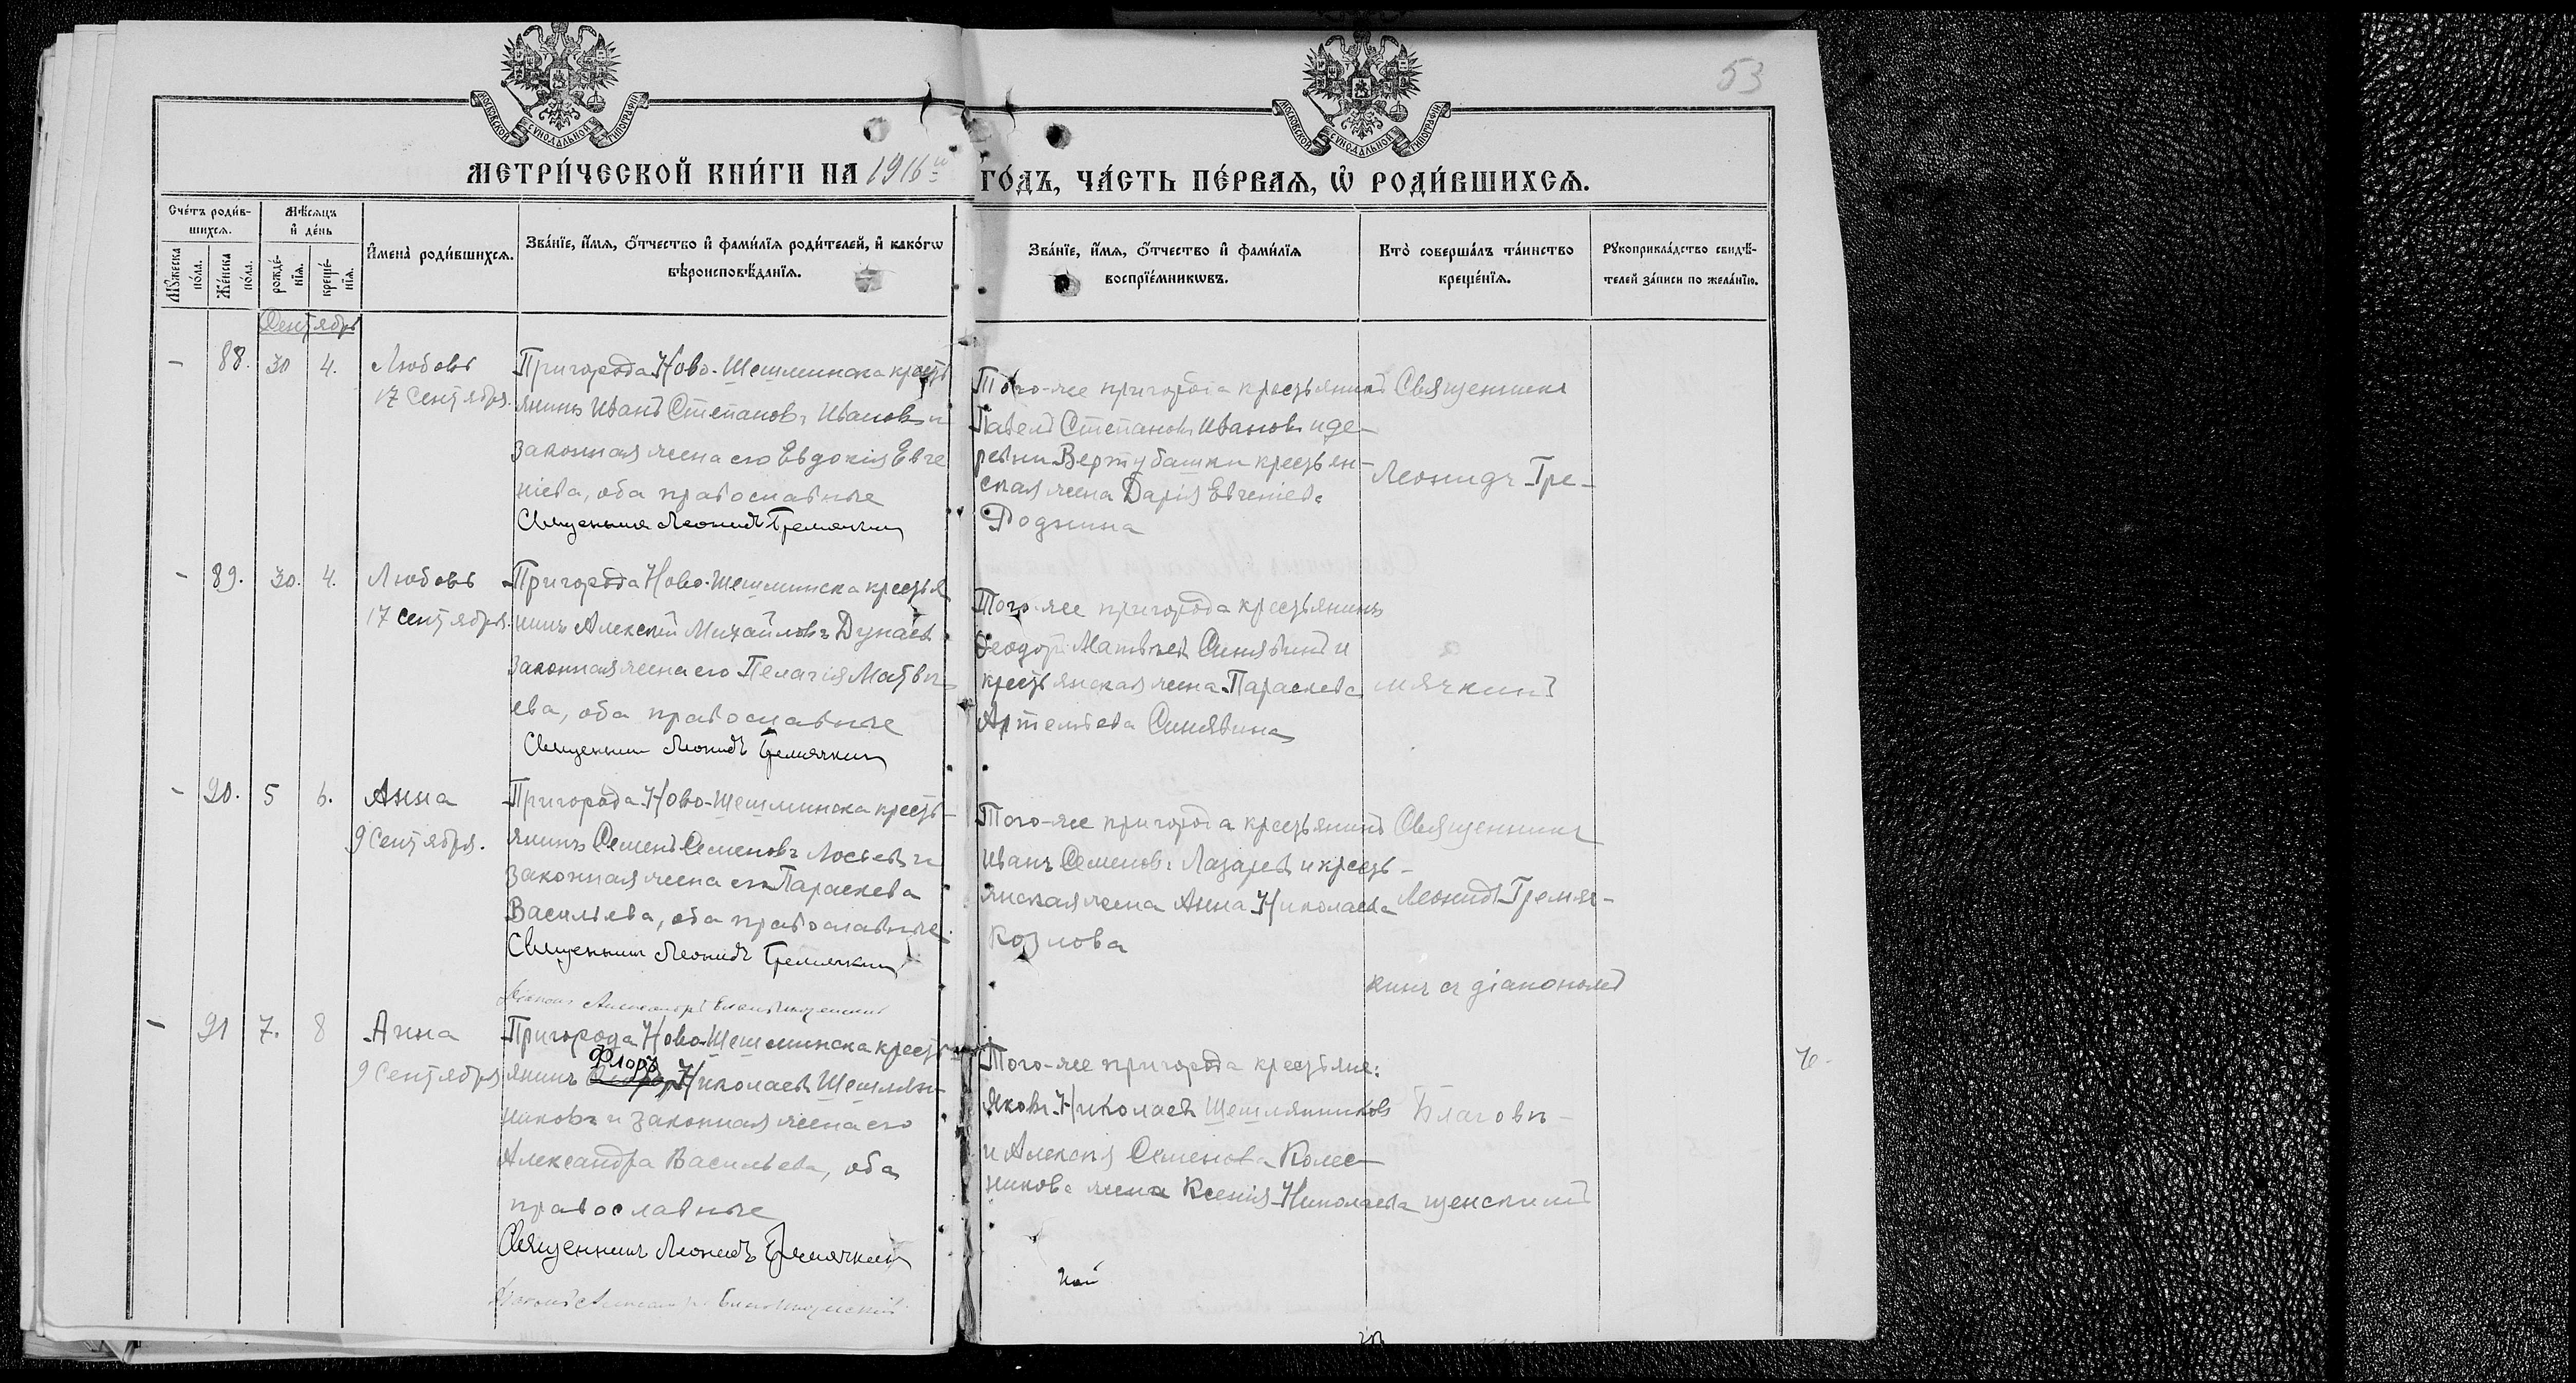 53
МОСКОВСКОЙ СѴНОДАЛЬНОЙ ТИПОГРАФІИ
МОСКОВСКОЙ СѴНОДАЛЬНОЙ ТИПОГРАФІИ
МЕТРИ́ЧЕСКОЙ КНИ́ГИ НА 1916й ГО́ДЪ, ЧА́СТЬ ПЕ́РВАѦ, Ѡ҆ РОДИ́ВШИХСѦ.
Сче́тъ роди́вшихсѧ.
Мꙋ́жеска по́ла.
Же́нска по́ла.
Мѣ́сѧцъ и҆ де́нь
рожде́нїѧ.
креще́нїѧ.
И҆мена̀ роди́вшихсѧ.
Зва́нїе, и҆́мѧ, ѻ҆́тчество и҆ фами́лїѧ роди́телей, и҆ како́гѡ
вѣроисповѣ́данїѧ.
Зва́нїе, и҆́мѧ, ѻ҆́тчество и҆ фами́лїѧ
воспрїе́мникѡвъ.
Кто̀ соверша́лъ та́инство
креще́нїѧ.
Рꙋкоприкла́дство свидѣ́-
телей за́писи по жела́нїю.
Сентябрь
- 88. 30 4. Любовь
17 Сентября.
Пригорода Ново-Шешминска кресть
янинъ Иванъ Степановъ Ивановъ и
законная жена его Евдокія Евге
ніева, оба православные
Священникъ Леонидъ Гремячкин
Того-же пригорода крестьянинъ
Павелъ Степановъ Ивановъ и де-
ревни Вертубашки крестьян-
ская жена Дарія Евгеніева
Роднина
Священникъ
Леонидъ Гре-
- 89. 30. 4. Любовь
17 Сентября.
Пригорода Ново-Шешминска крестья
нинъ Алексѣй Михайловъ Дунаев
законная жена его Пелагія Матвѣ
ева, оба православные
Священник Леонидъ Гремячкин
Того-же пригорода крестьянинъ
Ѳеодоръ Матвѣевъ Синявинъ и
крестьянская жена Параскева
Артемьева Синявина
мячкинъ
- 90. 5 6. Анна
9 Сентября.
Пригорода Ново-Шешминска кресть-
янинъ Семенъ Семеновъ Лосевъ и
законная жена его Параскева
Васильева, оба православные.
Священник Леонидъ Гремячкин
Діаконъ Александръ Благовѣщенскій
Того-же пригорода крестьянинъ
Иванъ Семеновъ Лазаревъ и кресть-
янская жена Анна Николаева
Козлова
Священникъ
Леонидъ Гремяч-
кинъ съ діакономъ
- 91 7. 8 Анна
9 Сентября
Пригорода Ново-Шешминска кресть
Флоръ
янинъ Николаевъ Шешлян-
никовъ и законная жена его
Александра Васильева, оба
православные
Священникъ Леонидъ Гремячкин
Діаконъ Александръ Благовѣщенскій
Того-же пригорода крестьяне:
Яковъ Николаевъ Шешлянников
и Алексѣя Семенова Колес-
никова жена Ксенія Николаева
Благовѣ-
щенскимъ